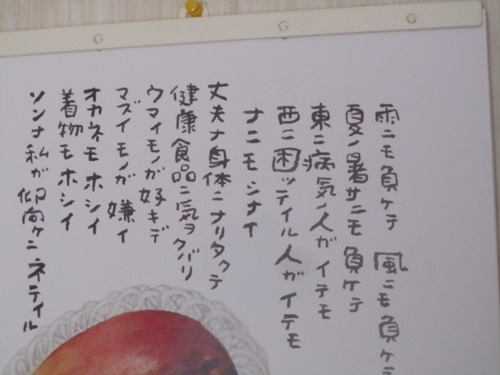 雨ニモ負ケテ 風ニモ負ケテ
夏ノ暑サニモ負ケテ
東ニ病気ノ人ガイテモ
西ニ困ッテイル人ガイテモ
ナニモシナイ
丈夫ナ身体ニナリタクテ
健康食品ニ気ヲクバリ
ウマイモノガ好キデ
マズイモノガ嫌イ
オカネモホシイ
着物モホシイ
ソンナ私ガ仰向ケニネテイル